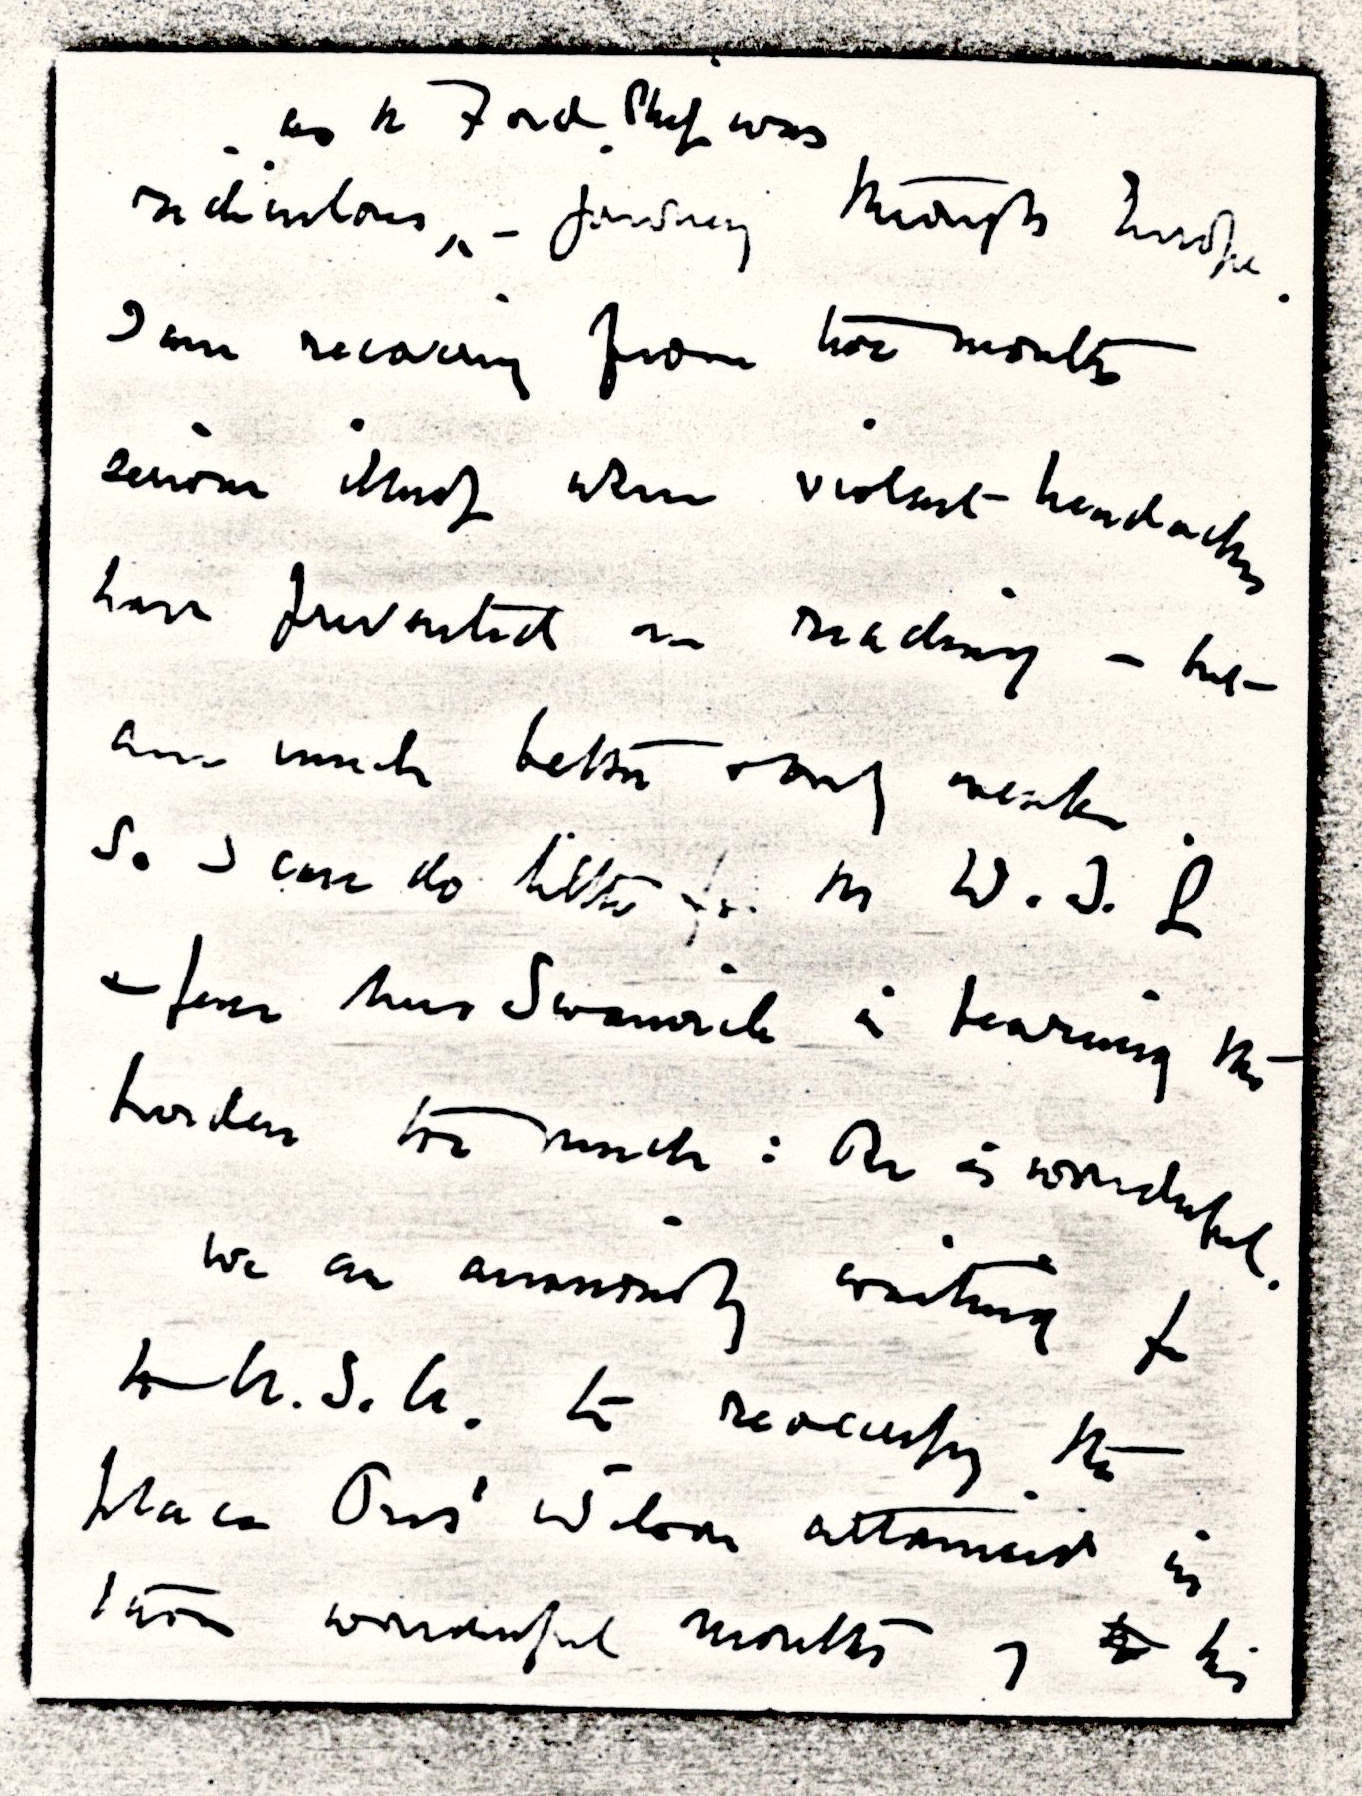 as the Ford Ship was
ridiculous, - journey through Europe.
I am recovering from two months
serious illness when violent headaches
have prevented me reading - but
am much better & only weak.
So I can do little for the W. I. L
& fear Miss Swanwick is bearing the
burden too much: She is wonderful.
We are anxiously waiting for
the U.S.A. to reoccupy the
place Pres' Wilson attained in
those wonderful months of his